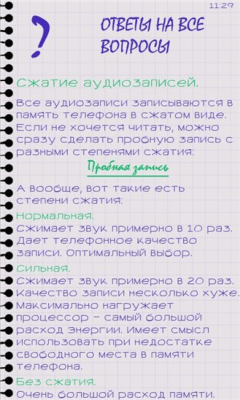 11:29
?
ОТВЕТЫ НА ВСЕ
ВОПРОСЫ
Сжатие аудиозаписей.
Все аудиозаписи записываются в
память телефона в сжатом виде.
Если не хочется читать, можно
сразу сделать пробную запись с
разными степенями сжатия:
Пробная запись
А вообще, вот такие есть
степени сжатия:
Нормальная.
Сжимает звук примерно в 10 раз.
Дает телефонное качество
записи. Оптимальный выбор.
Сильная.
Сжимает звук примерно в 20 раз.
Качество записи несколько хуже.
Максимально нагружает
процессор - самый большой
расход энергии. Имеет смысл
использовать при недостатке
свободного места в памяти
телефона.
Без сжатия.
Очень большой расход памяти.